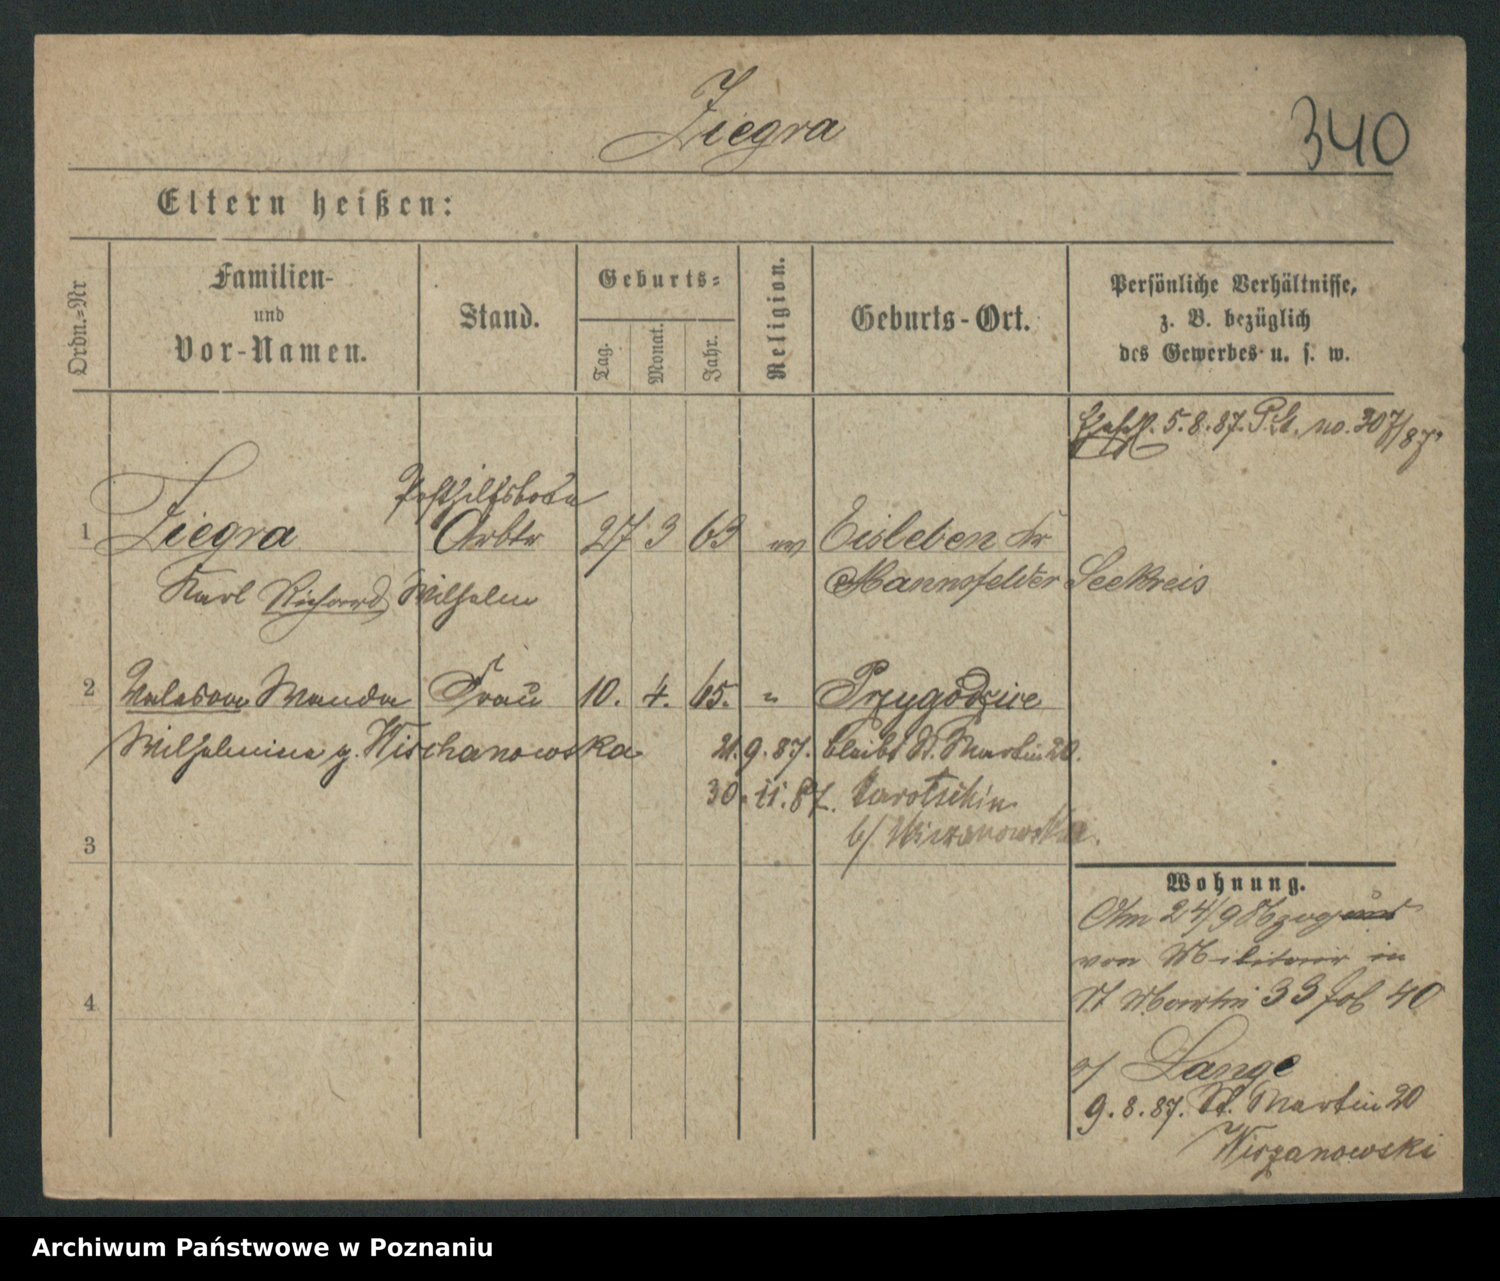 Ziegra
340
Eltern heißen:
Ordn.=Nr
Familien-
und
Vor-Namen.
Stand.
Geburts=
Tag.
Monat.
Jahr.
Religion.
Geburts-Ort.
Persönliche Verhältnisse,
z. B. bezüglich
des Gewerbes u. s. w.
5.8.87. no. 307/87
Posthilfsbote
1 Ziegra Arbtr 27 3 63 ev Eisleben Kr
Karl Richard Wilhelm Mannsfelder Seekreis
2 Valeska Wanda Frau 10. 4. 65. " Przygodzice
Wilhelmine g. Wischanowska 21.9.87. bleibt St. Martin 20.
30.11.87. Jarotschin
b/ Wiczanowska.
3
Wohnung.
Am 24/9 86 zog
von Militair in
St Martin 33 Job 40
4
b/ Lange
9.8.87. St. Martin 20
Wiszanowski
Archiwum Państwowe w Poznaniu